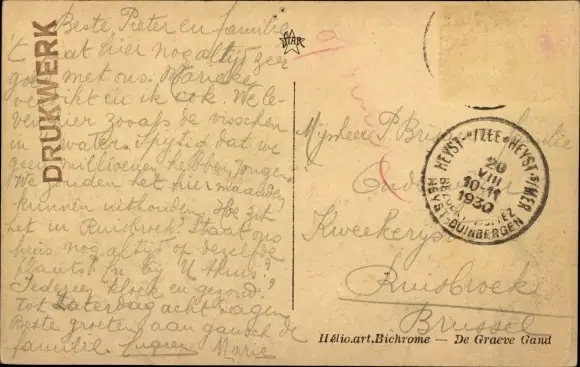 DRUKWERK
Beste Pieter en familie
't gaat hier nog altijd zeer
goed met ons. Marieke
ook. We le-
ven hier zooals de visschen
in water. Spijtig dat we
geen millioenen hebben, jongens
We zouden het hier maanden
kunnen uithouden. Hoe zit
het in Ruisbroek? Staat ons
huis nog altijd op dezelfde
plaats? En bij U thuis?
Iedereen kloek en gezond?
Tot Zaterdag acht dagen
Beste groeten aan gansch de
familie. Eugeen Marie
STAR
Mijnheer P.
Kweekerij
Ruisbroek
Brussel
HEYST-A/ZEE * HEYST-S/MER
20
VIII
10-11
1930
HEYST-DUINBERGEN
Hélio.art.Bichrome — De Graeve Gand